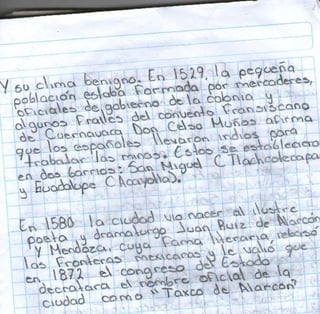 Y su clima benigno. En 1529, la pequeña
población estaba formada por mercaderes,
oficiales de gobierno de la colonia y
algunos frailes del convento Fransiscano
de Cuernavaca Don Celso Muños afirma
que los españoles llevaron indios para
trabajar las minas. Estos se establecieron
en dos barrios: San Miguel (Tlachcotecapa
y Guadalupe (Acayotla).
En 1580 la ciudad vio nacer al ilustre
poeta y dramaturgo Juan Ruiz de Alarcón
Y Mendoza. Cuya fama literaria, rebasó
las fronteras mexicanas y le valió que
en 1872 el congreso del Estado
decretara el nombre oficial de la
ciudad como "Taxco de Alarcón"